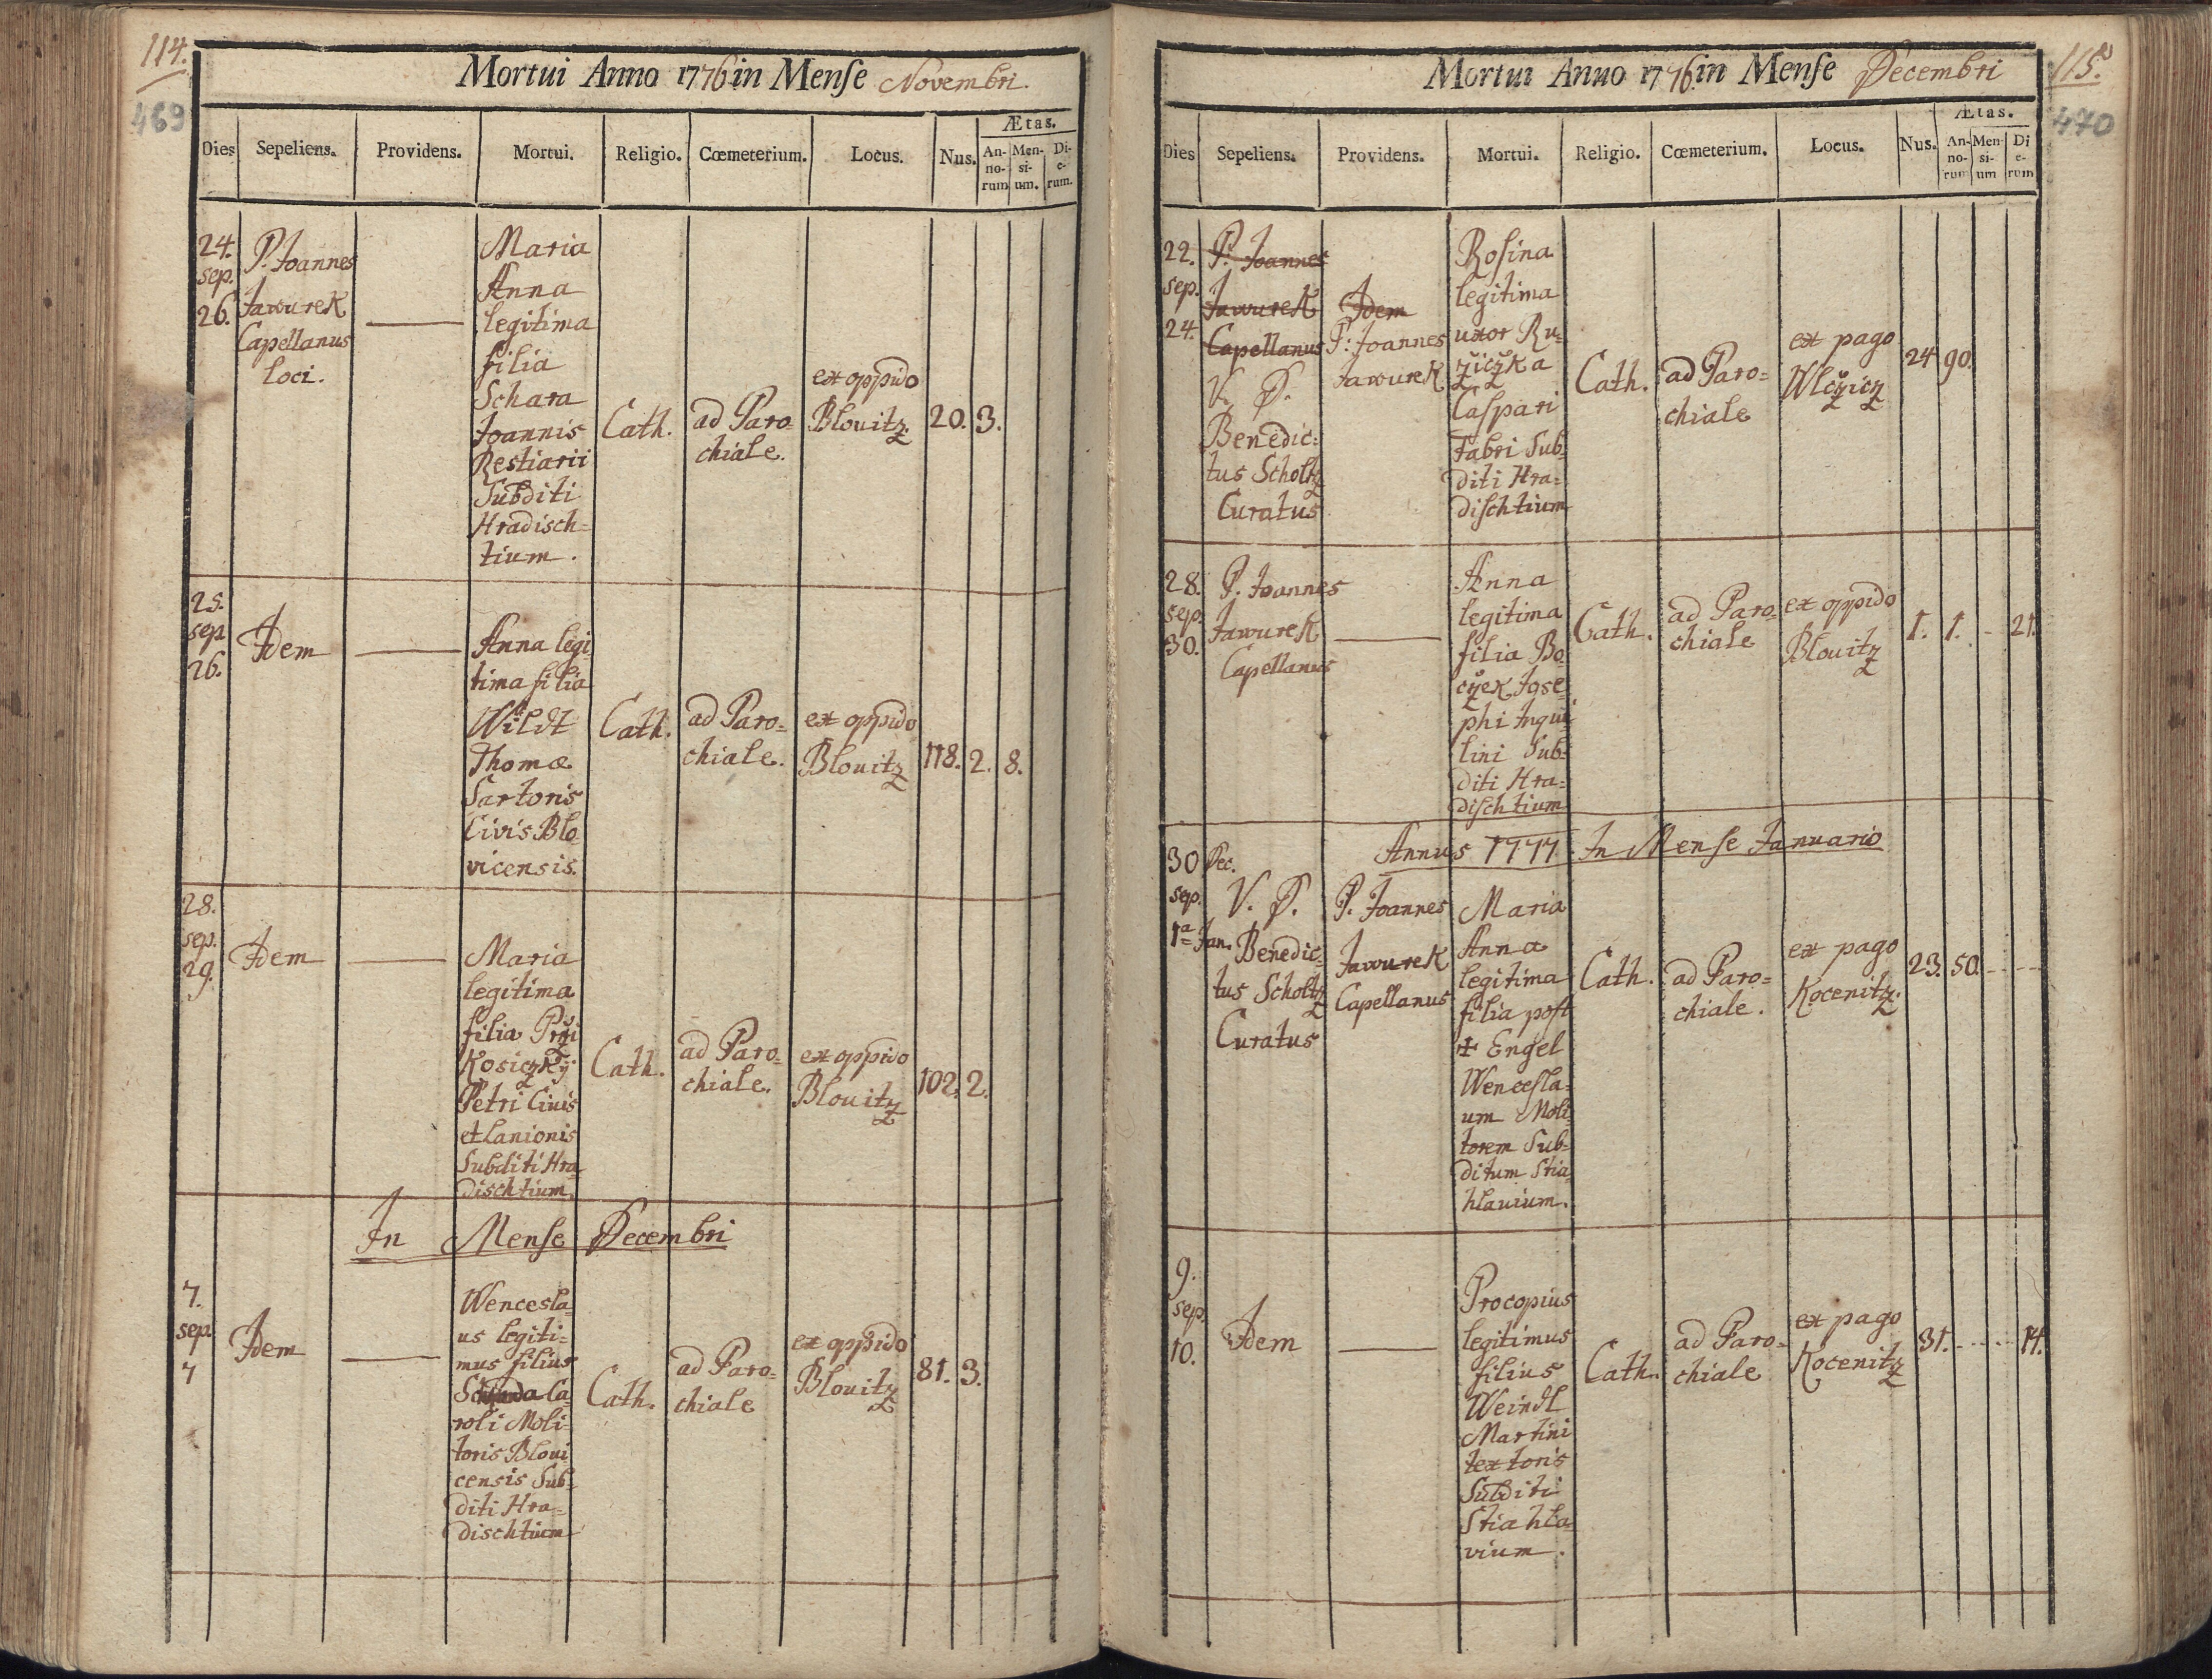 114.
469
Mortui Anno 1776 in Mense Novembri.
Dies
Sepeliens.
Providens.
Mortui.
Religio.
Cœmeterium.
Locus.
Nus.
Ætas.
An-
no-
rum
Men-
si-
um.
Di-
e-
rum.
24.
sep.
26.
P. Joannes
Jawurek
Capellanus
loci.
Maria
Anna
legitima
filia
Schara
Joannis
Restiarii
Subditi
Hradisch=
tium.
Cath.
ad Paro=
chiale.
ex oppido
Blouitz
20.
3.
25.
sep
26.
Idem
Anna legi
tima filia
Wildt
Thomæ
Sartoris
Civis Blo
vicensis.
Cath.
ad Paro=
chiale.
ex oppido
Blouitz
118.
2.
8.
28.
sep.
29.
Idem
Maria
legitima
filia
Kosiczky
Petri Civis
et Lanionis
Subditi Hra
dischtium.
Cath.
ad Paro=
chiale.
ex oppido
Blouitz
102.
2.
In Mense Decembri
7.
sep
7
Idem
Wencesla=
us legiti=
mus filius
Ca=
roli Moli=
toris Bloui
censis Sub=
diti Hra=
dischtium
Cath.
ad Paro=
chiale
ex oppido
Blouitz
81.
3.
115.
470
Mortui Anno 1776 in Mense Decembri
Dies
Sepeliens.
Providens.
Mortui.
Religio.
Cœmeterium.
Locus.
Nus.
Ætas.
An-
no-
rum
Men-
si-
um
Di
e-
rum
22.
sep.
24.
P. Joannes
Jawurek
Capellanus
V. P.
Benedic=
tus Scholtz
Curatus
Idem
P: Joannes
Jawurek
Rosina
legitima
uxor Ru=
ziczka
Caspari
Fabri Sub=
diti Hra=
dischtium
Cath.
ad Paro=
chiale
ex pago
Wlczicz
24
90.
28.
sep.
30.
P. Joannes
Jawurek
Capellanus
Anna
legitima
filia Bo
czek Jose
phi Inqui
lini Sub=
diti Hra=
dischtium
Cath.
ad Paro=
chiale
ex oppido
Blouitz
1.
1.
21.
Annus 1777. In Mense Januario
30 Dec.
sep.
1a Jan.
V. P.
Benedic=
tus Scholtz
Curatus
P. Joannes
Jawurek
Capellanus
Maria
Anna
legitima
filia post
✝ Engel
Wencesla=
um Moli
torem Sub=
ditum Stia
hlauium.
Cath.
ad Paro=
chiale.
ex pago
Kocenitz.
23.
50.
9.
sep.
10.
Idem
Procopius
legitimus
filius
Weindl
Martini
textoris
Subditi
Stiahla
vium.
Cath.
ad Paro=
chiale
ex pago
Kocenitz
31.
14.